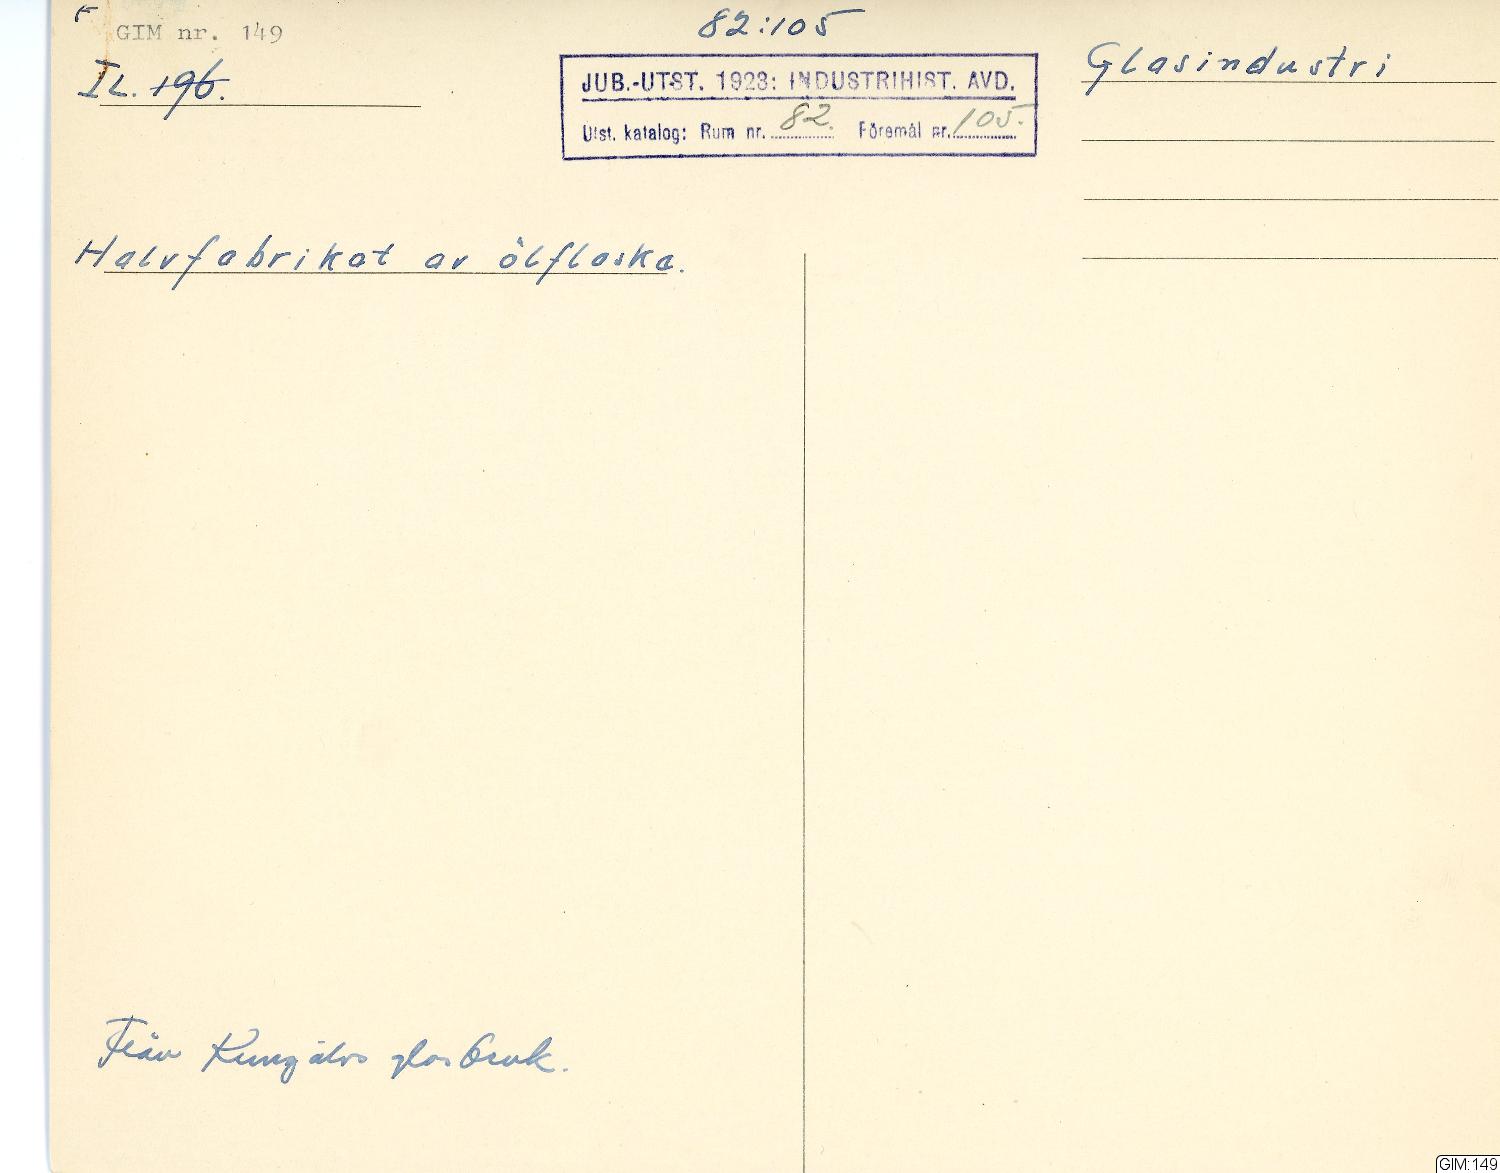 GIM nr. 149
82:105
Glasindustri
IL. 196.
JUB.-UTST. 1923: INDUSTRIHIST. AVD.
Utst. katalog: Rum nr. 82. Föremål nr. 105.
Halvfabrikat av ölflaska.
Från Kungälvs glasbruk.
GIM:149